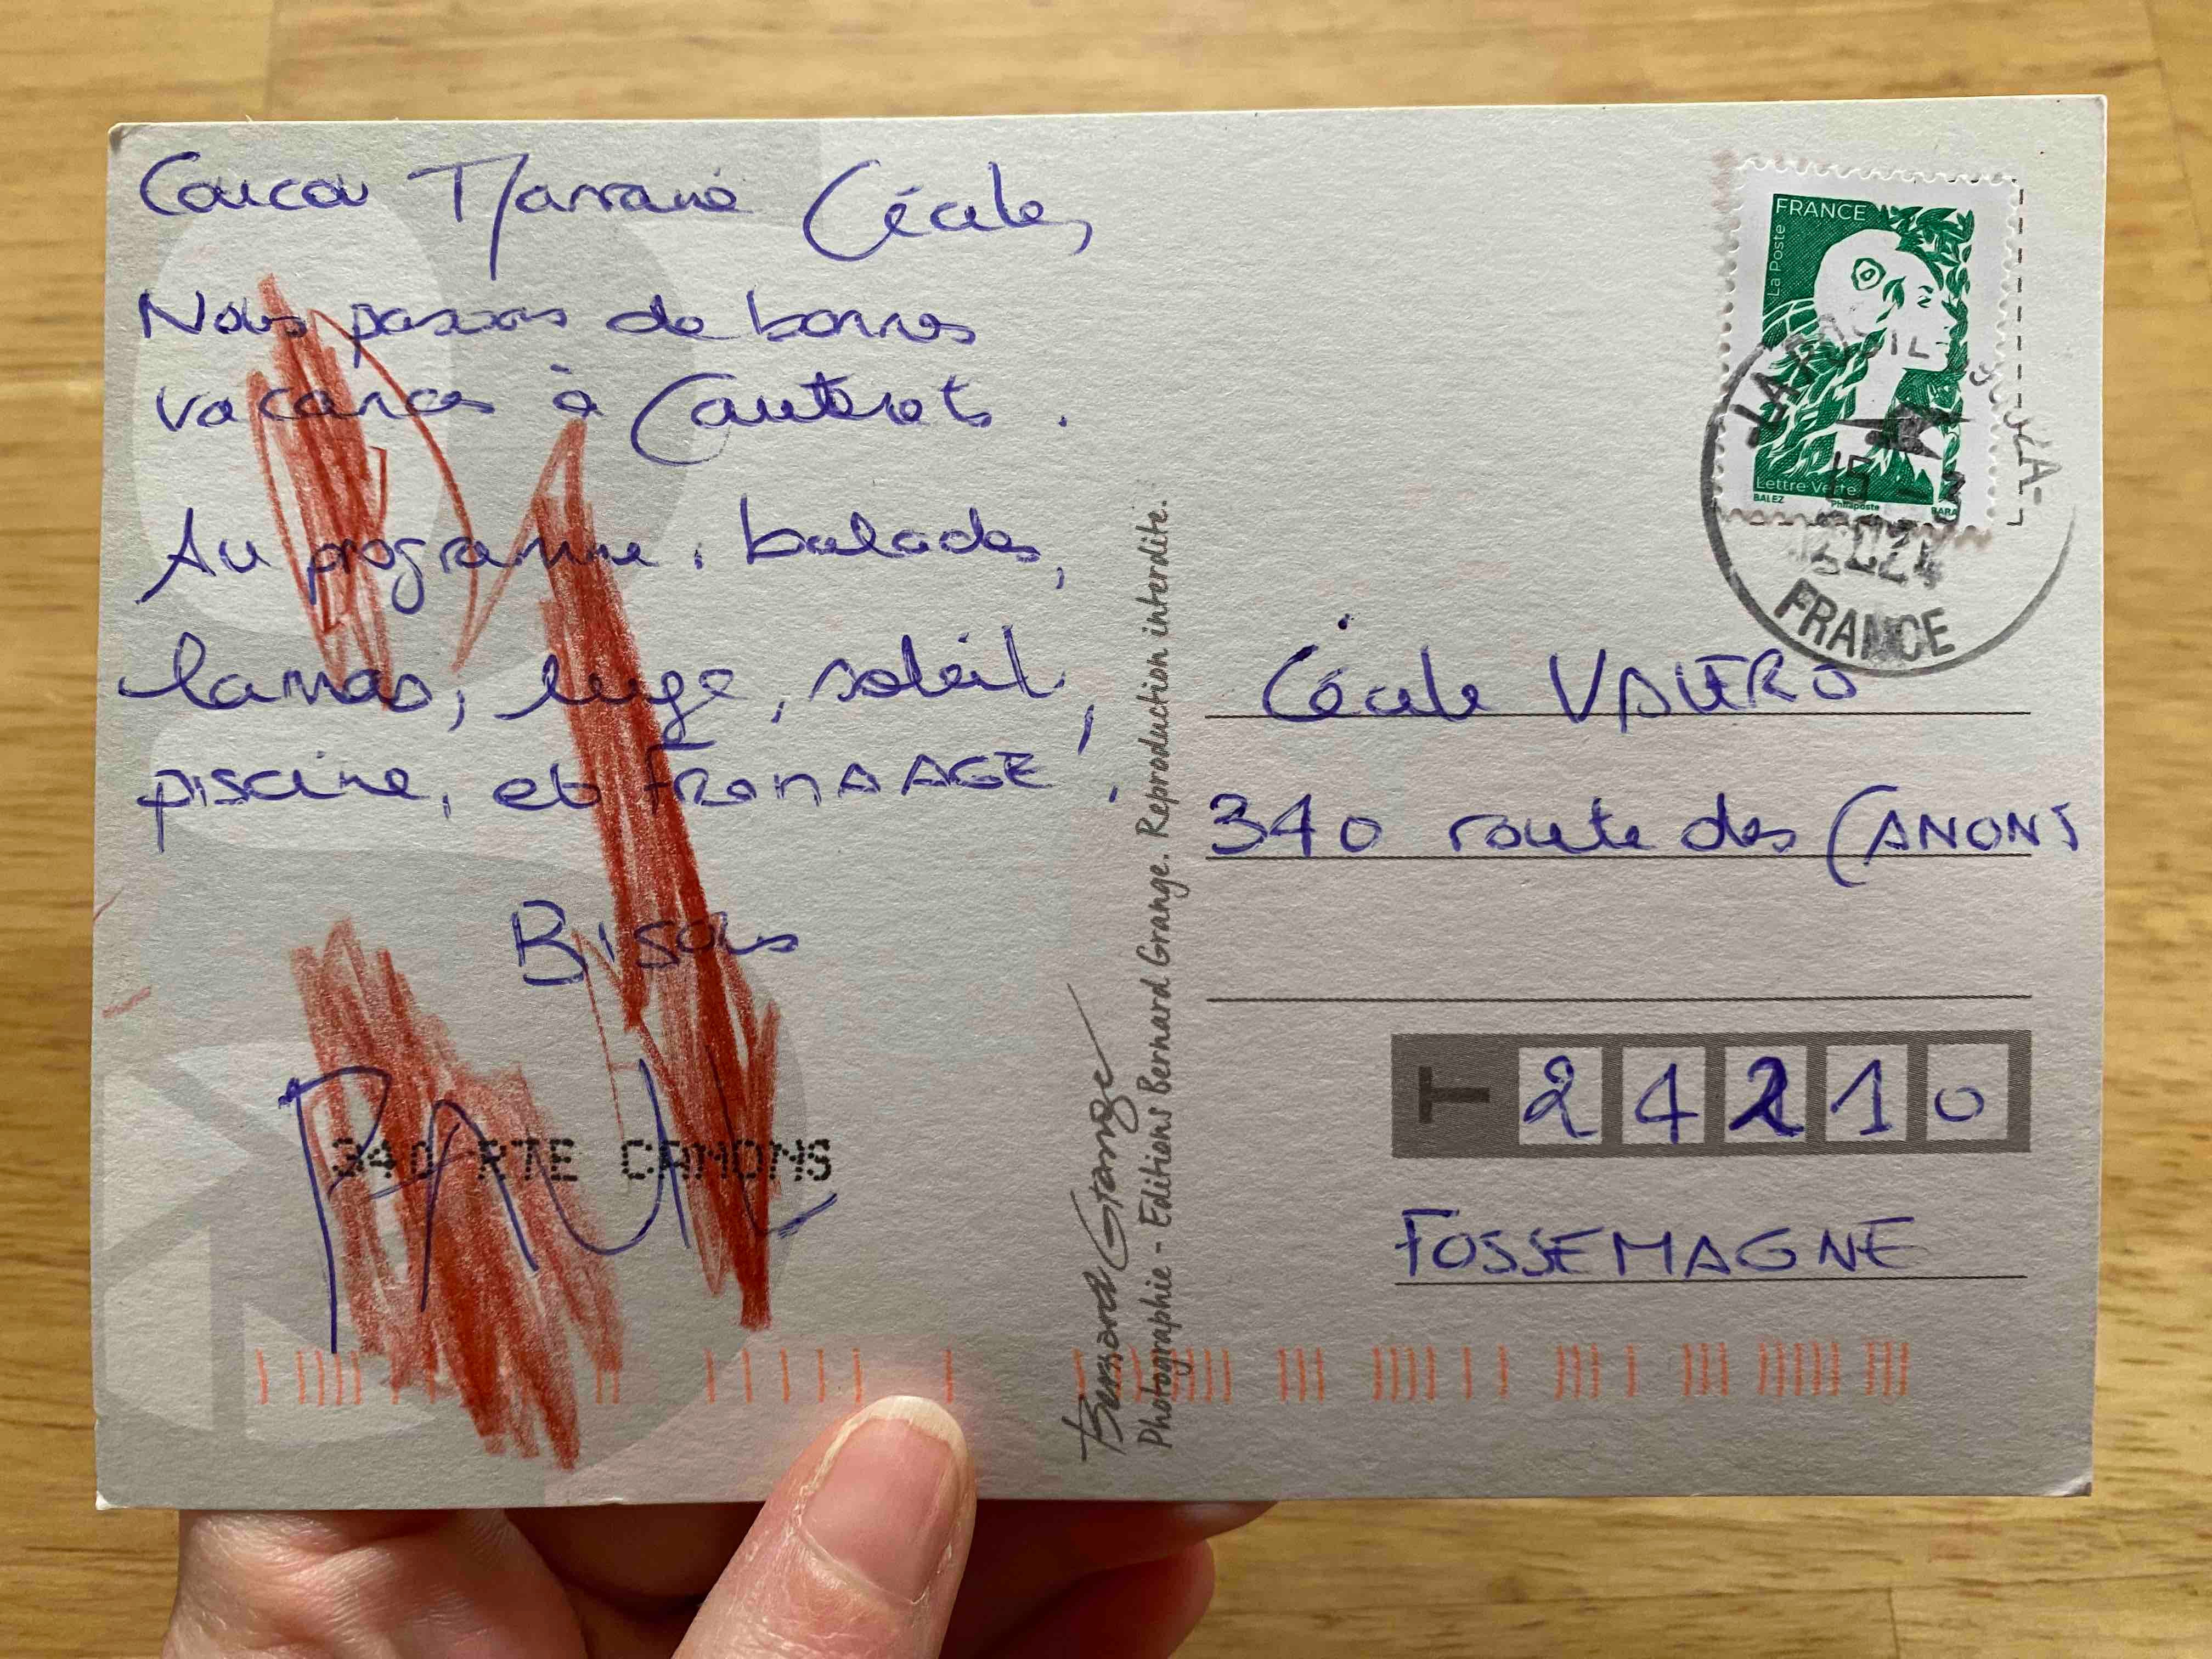 Coucou Marraine Cécile,
Nous passons de bonnes
vacances à Cauterets.
Au programme : balades,
lamas, luge, soleil,
piscine, et FROMAAGE!
Bisous
PAUL
340 RTE CANONS
Bernard Grange
Photographie - Editions Bernard Grange. Reproduction interdite.
FRANCE
La Poste
Lettre Verte
BALEZ
Philaposte
BARA
2024
FRANCE
Cécile VALERO
340 route des CANONS
T 24210
FOSSEMAGNE